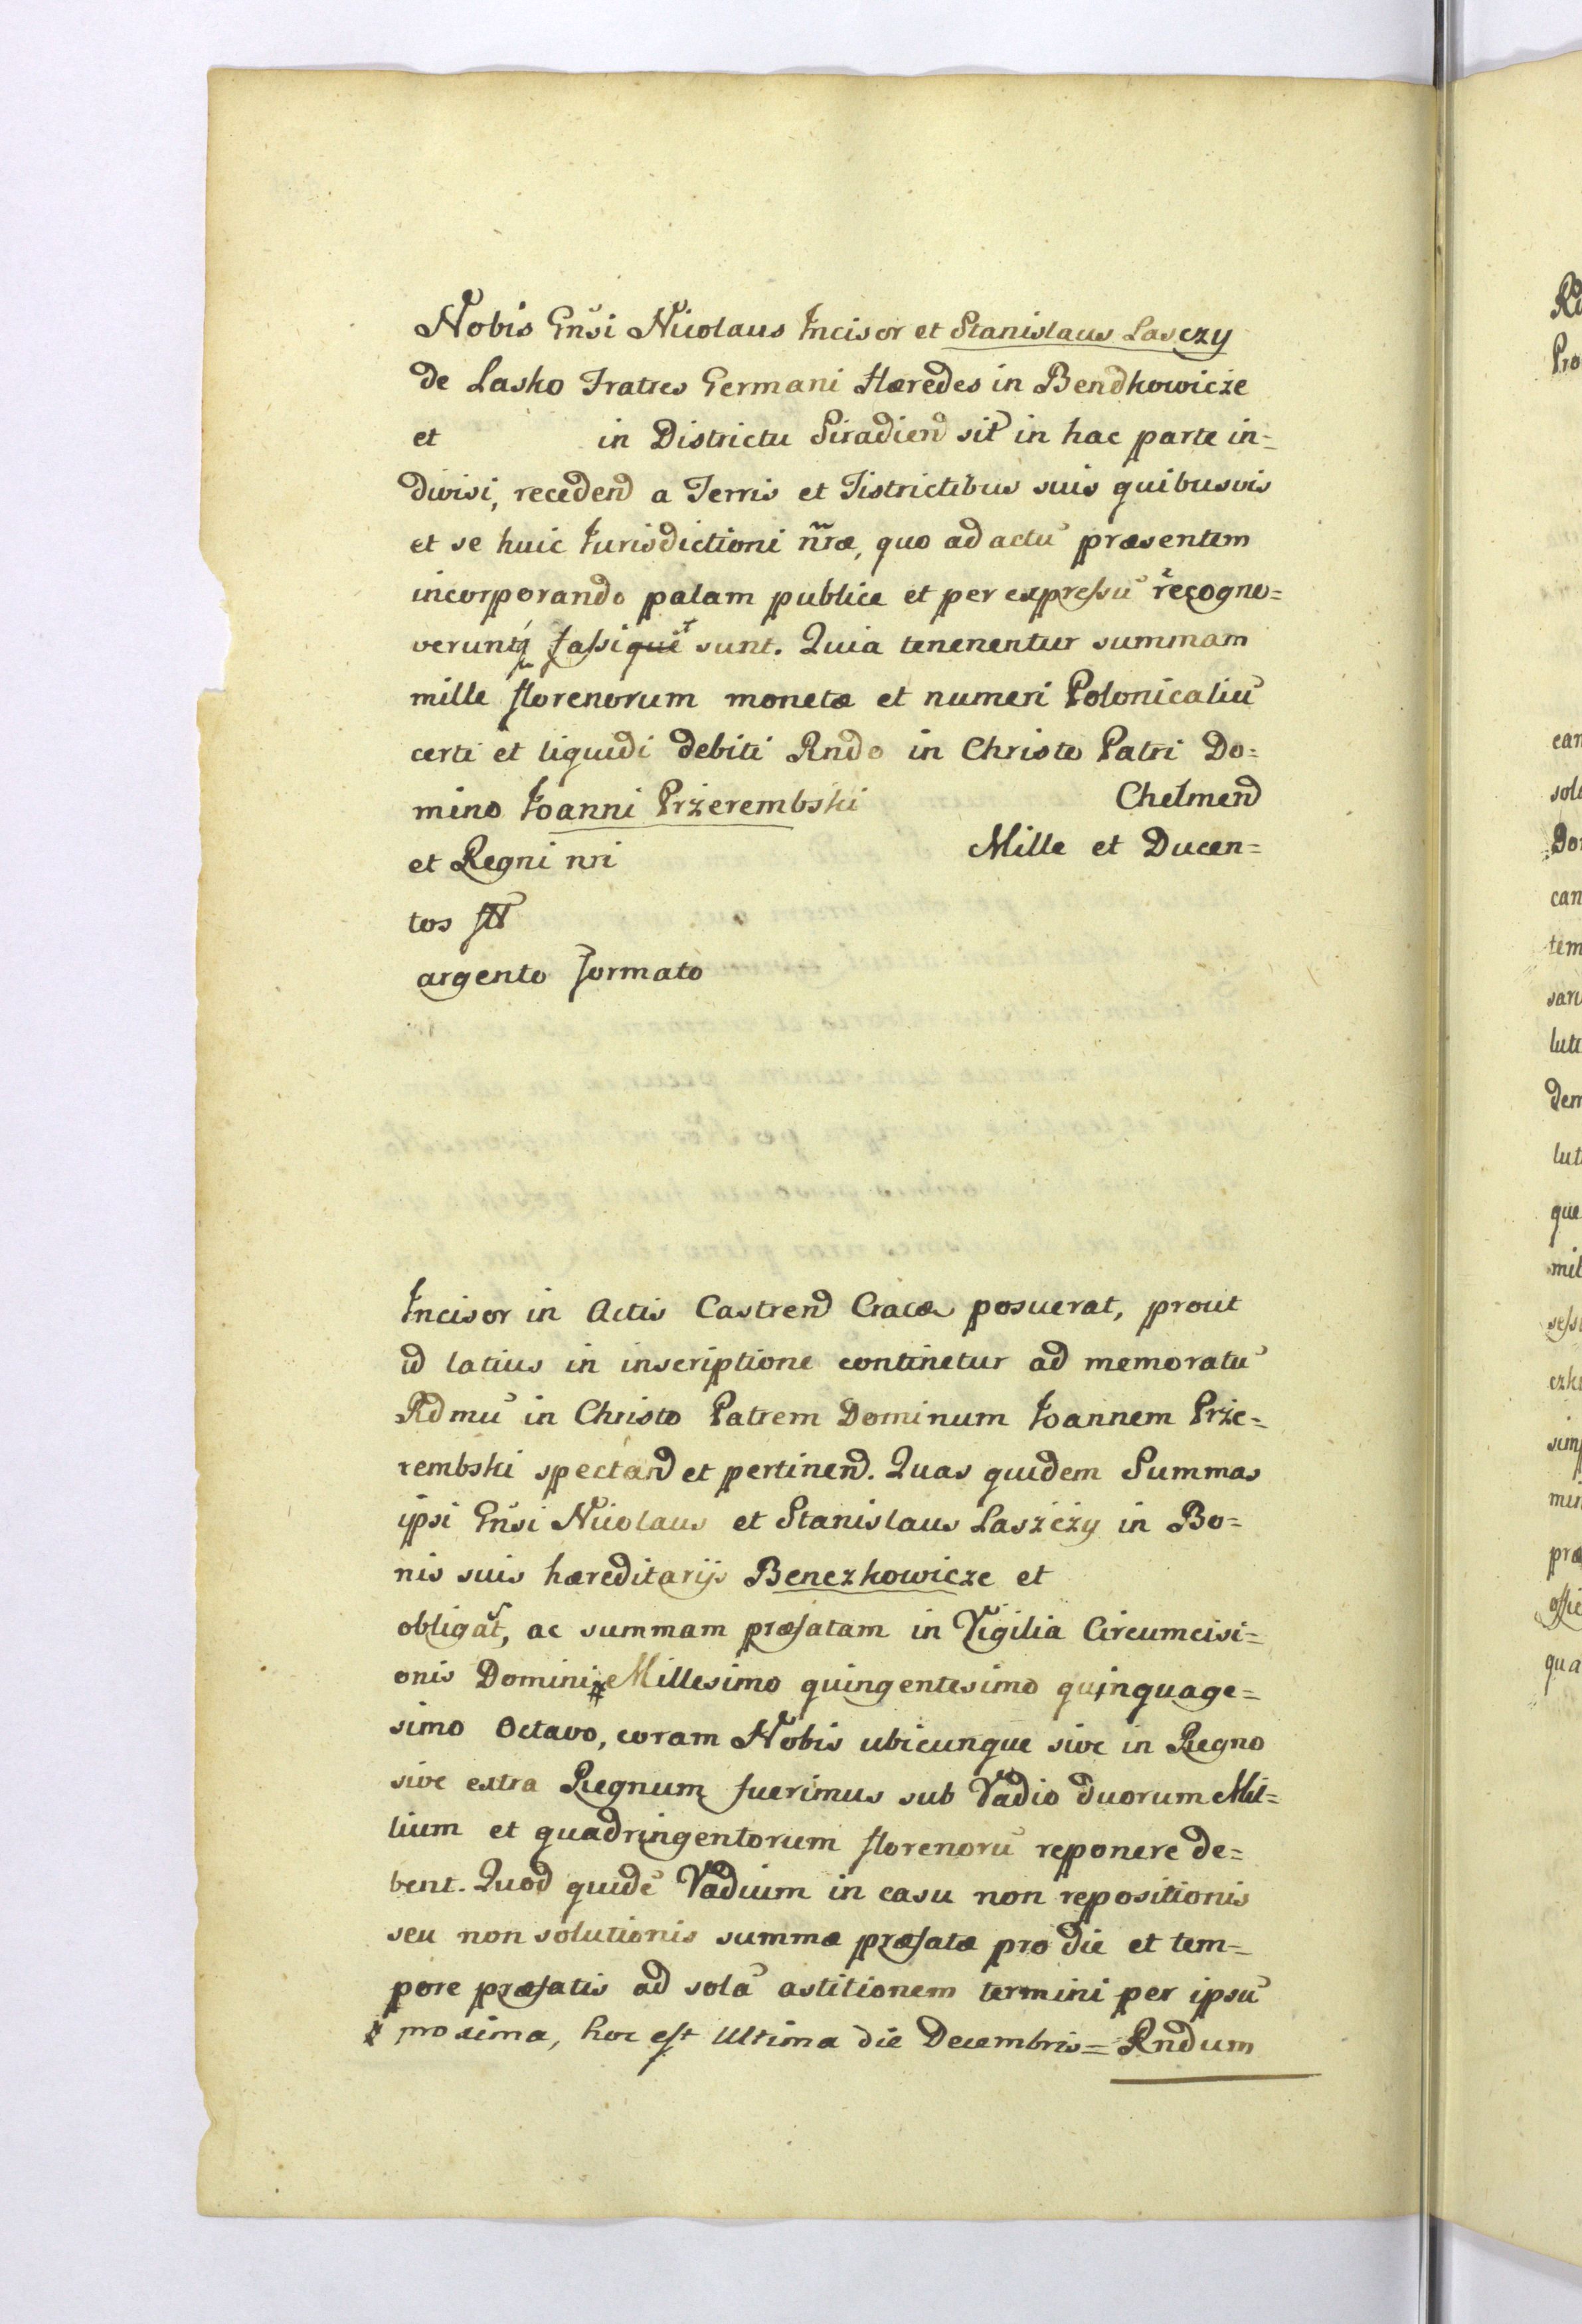 Nobis Gnsi Nicolaus Incisor et Stanislaus Lasczy
de Lasko Fratres Germani Hæredes in Bendkowicże
et in Districtu Siradien sit in hac parte in=
divisi, receden a Terris et Tistrictibus suis quibusvis
et se huic Jurisdictioni nr̃æ, quo ad actũ præsentem
incorporando palam publice et per expressũ recogno=
verunt fassique sunt. Quia tenenentur summam
mille florenorum monetæ et numeri Polonicaliũ
certi et liquidi debiti Rndo in Christo Patri Do=
mino Joanni Prżerembski Chelmen
et Regni nri Mille et Ducen=
tos fll
argento formato
Incisor in Actis Castren Cracæ posuerat, prout
id latius in inscriptione continetur ad memoratũ
Rdmũ in Christo Patrem Dominum Joannem Prże=
rembski spectan et pertinen. Quas quidem Summas
ipsi Gnsi Nicolaus et Stanislaus Laszczy in Bo=
nis suis hæreditarijs Benczkowicze et
obligat, ac summam præfatam in Vigilia Circumcisi=
onis Domini # Millesimo quingentesimo quinquage=
simo Octavo, coram Nobis ubicunque sive in Regno
sive extra Regnum fuerimus sub Vadio duorum Mil=
lium et quadringentorum florenorũ reponere de=
bent. Quod quidẽ Vadium in casu non repositionis
seu non solutionis summæ præfatæ pro die et tem=
pore præfatis ad solã astitionem termini per ipsũ
# proxima, hoc est Ultima die Decembris = Rndum